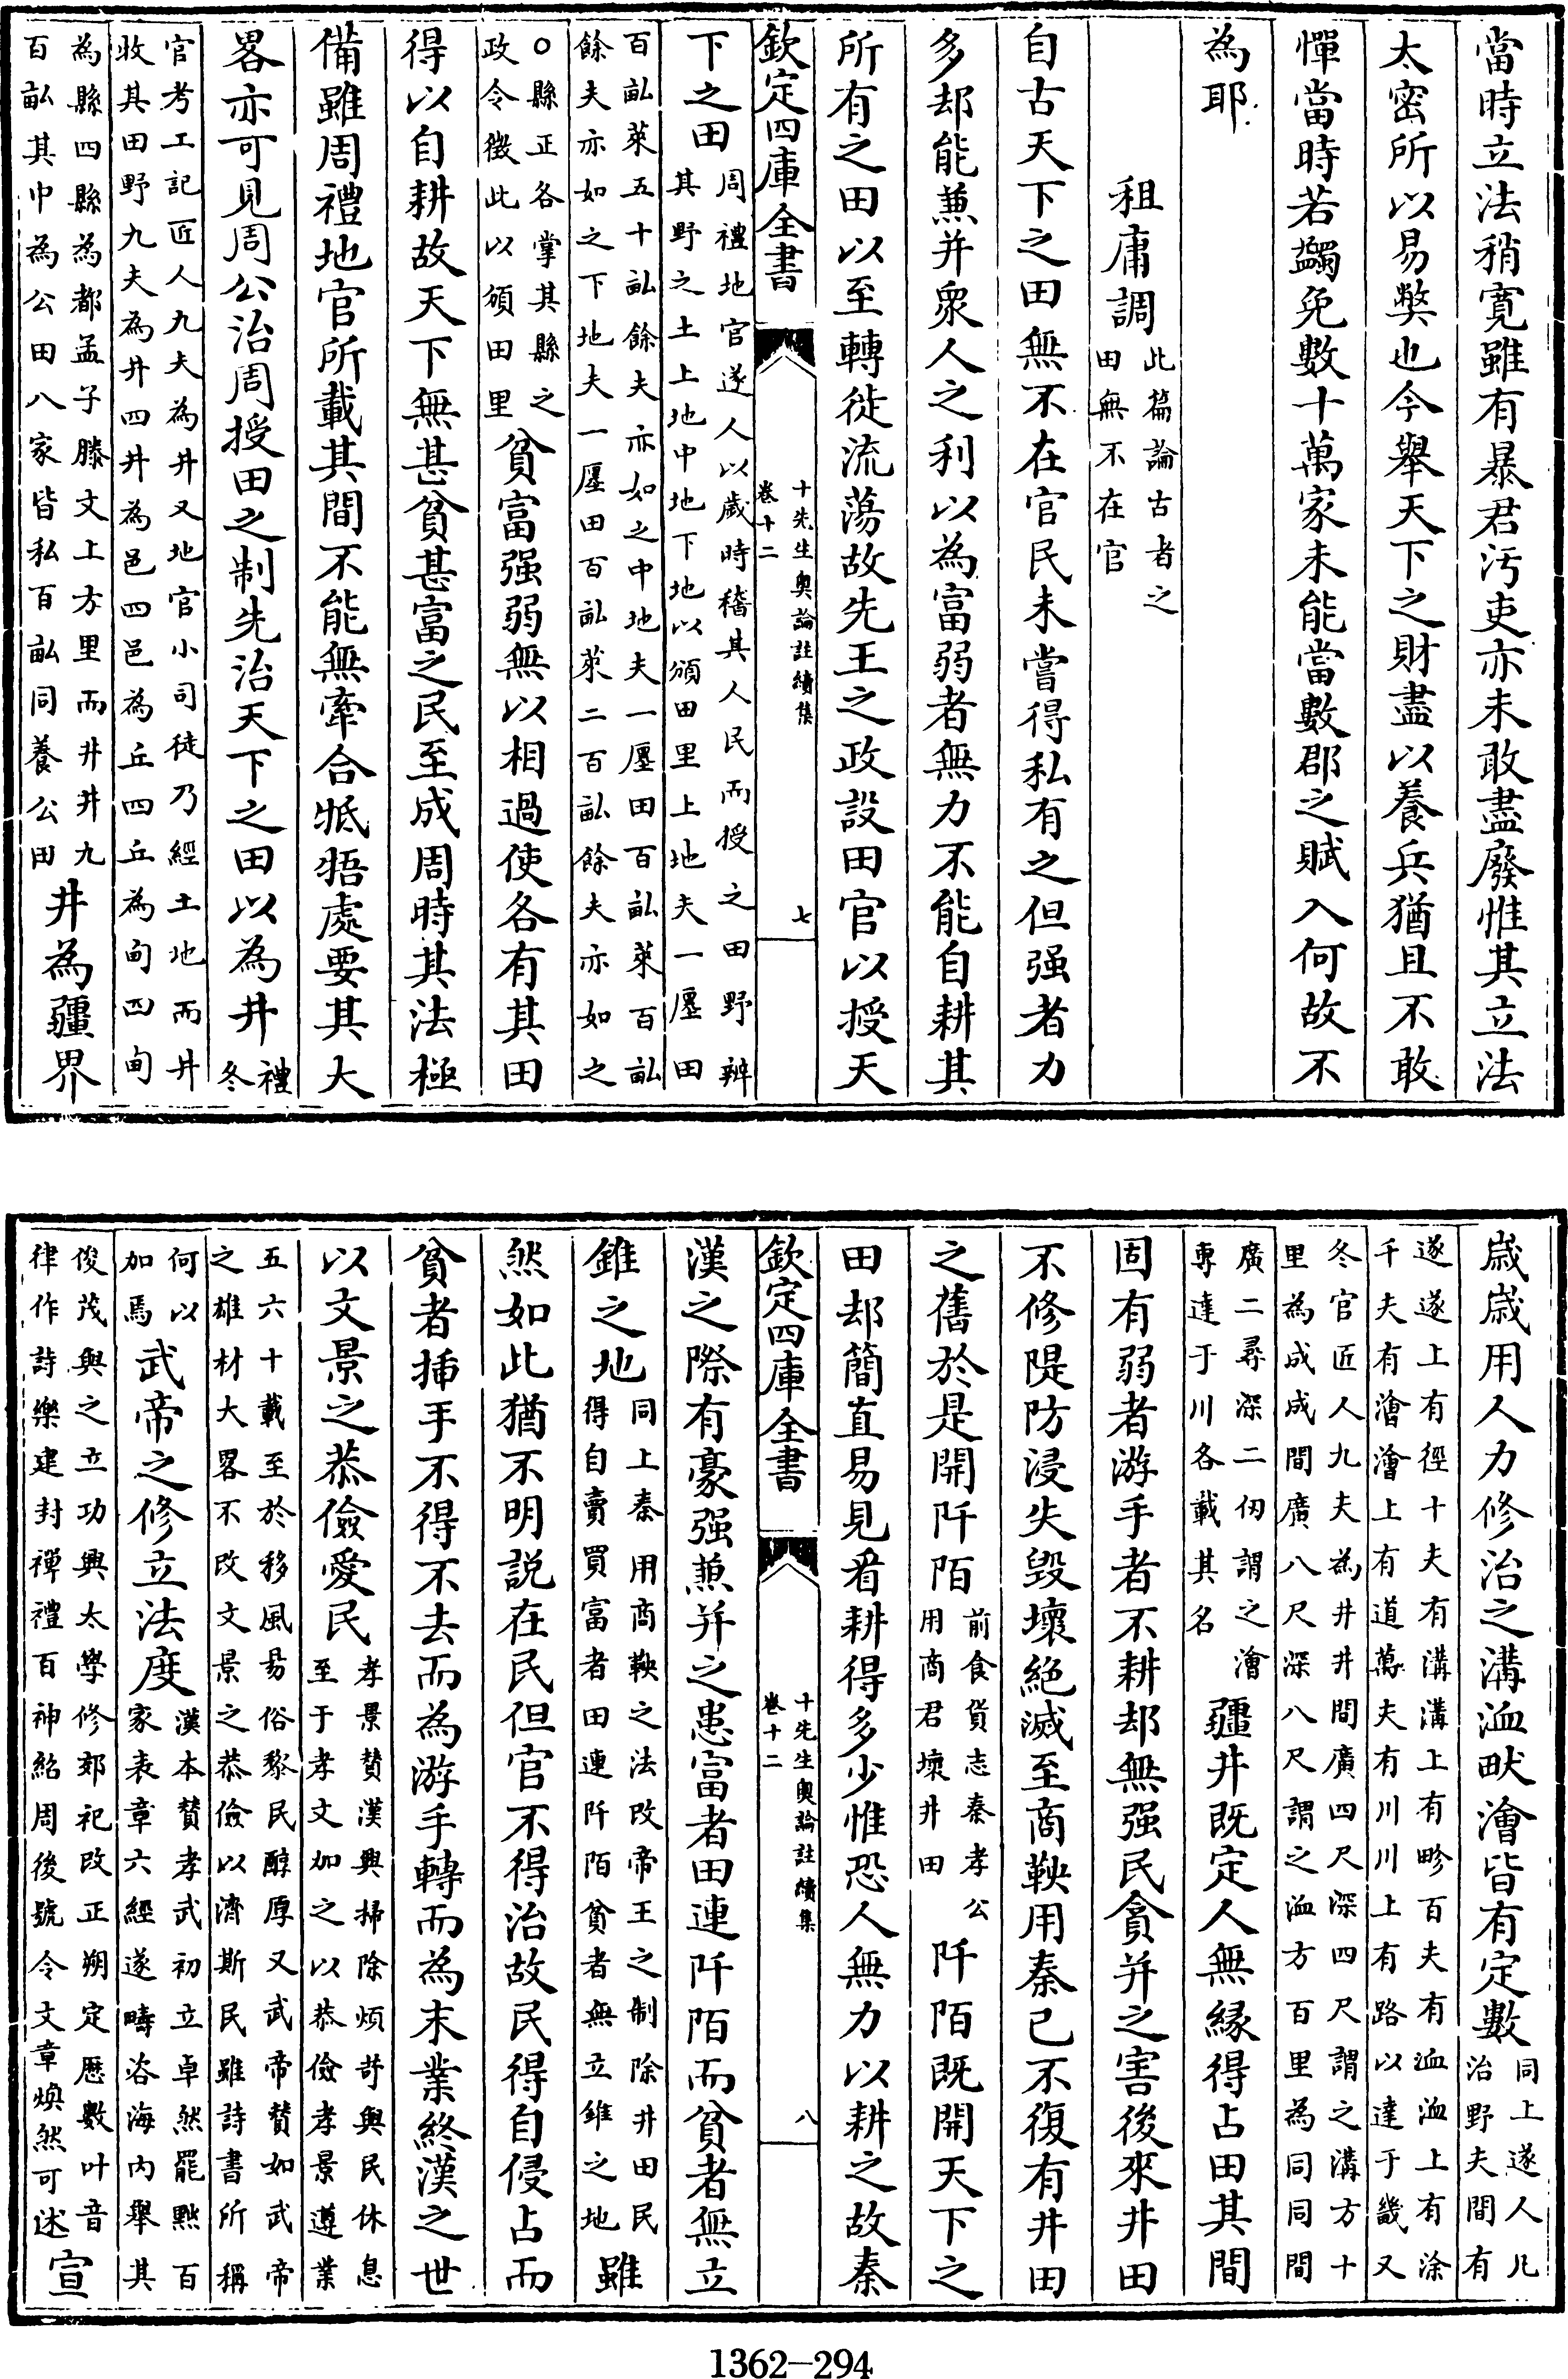 當時立法稍寛雖有暴君汚吏亦未敢盡廢惟其立法
太密所以易弊也今舉天下之財盡以養兵猶且不敢
憚當時若蠲免數十萬家未能當數郡之賦入何故不
為耶
租庸調此篇論古者之田無不在官
自古天下之田無不在官民未嘗得私有之但强者力
多却能兼并衆人之利以為富弱者無力不能自耕其
所有之田以至轉徙流蕩故先王之政設田官以授天
欽定四庫全書 十先生奥論註續集 卷十二 七
下之田周禮地官遂人以歲時稽其人民而授之田野辨其野之土上地中地下地以頒田里上地夫一廛田
百畝萊五十畝餘夫亦如之中地夫一廛田百畝萊百畝餘夫亦如之下地夫一廛田百畝萊二百畝餘夫亦如之
○縣正各掌其縣之政令徵此以頒田里貧富强弱無以相過使各有其田
得以自耕故天下無甚貧甚富之民至成周時其法極
備雖周禮地官所載其間不能無牽合牴牾處要其大
畧亦可見周公治周授田之制先治天下之田以為井禮冬
官考工記匠人九夫為井又地官小司徒乃經土地而井收其田野九夫為井四井為邑四邑為丘四丘為甸四甸
為縣四縣為都孟子滕文上方里而井井九百畝其中為公田八家皆私百畝同養公田井為疆界
歲歲用人力修治之溝洫畎澮皆有定數同上遂人凡治野夫間有
遂遂上有徑十夫有溝溝上有畛百夫有洫洫上有涂千夫有澮澮上有道萬夫有川川上有路以達于畿又
冬官匠人九夫為井井間廣四尺深四尺謂之溝方十里為成成間廣八尺深八尺謂之洫方百里為同同間
廣二尋深二仞謂之澮專達于川各載其名疆井既定人無縁得占田其間
固有弱者游手者不耕却無强民貪并之害後來井田
不修隄防浸失毁壞絶滅至商鞅用秦已不復有井田
之舊於是開阡陌前食貨志秦孝公用商君壞井田阡陌既開天下之
田却簡直易見看耕得多少惟恐人無力以耕之故秦
欽定四庫全書 十先生奥論註續集 卷十二 八
漢之際有豪强兼并之患富者田連阡陌而貧者無立
錐之地同上秦用商鞅之法改帝王之制除井田民得自賣買富者田連阡陌貧者無立錐之地雖
然如此猶不明説在民但官不得治故民得自侵占而
貧者揷手不得不去而為游手轉而為末業終漢之世
以文景之恭儉愛民孝景賛漢興掃除煩苛與民休息至于孝文加之以恭儉孝景遵業
五六十載至於移風易俗黎民醇厚又武帝賛如武帝之雄材大畧不改文景之恭儉以濟斯民雖詩書所稱
何以加焉武帝之修立法度漢本賛孝武初立卓然罷黜百家表章六經遂疇咨海内舉其
俊茂與之立功興太學修郊祀改正朔定厯數叶音律作詩樂建封禪禮百神紹周後號令文章煥然可述宣
1362—294